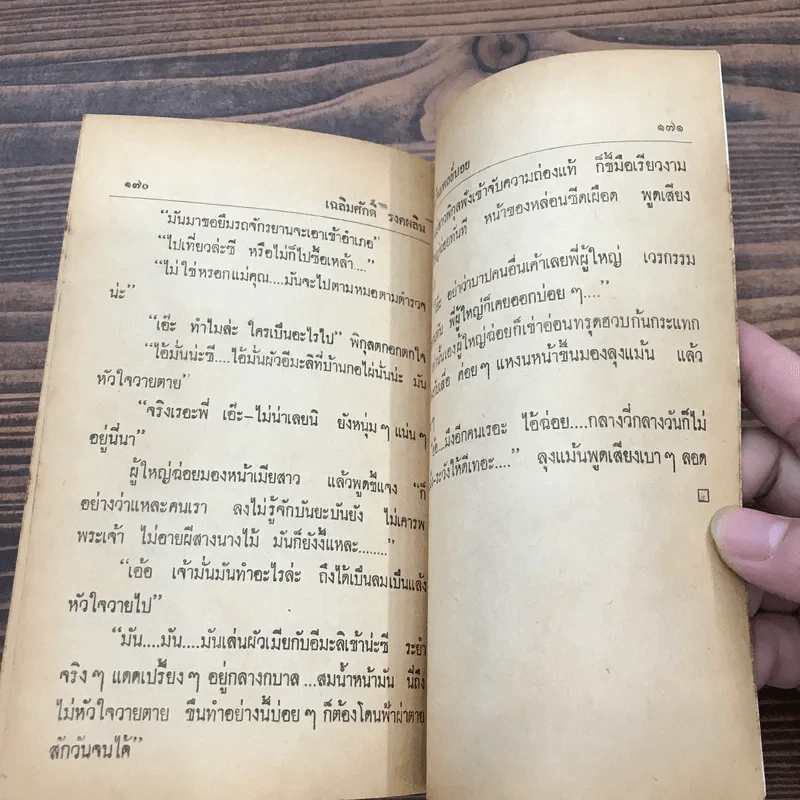 ๑๗๐
เฉลิมศักดิ์ รงคผลิน
“มันมาขอยืมรถจักรยานจะเอาเข้าอำเภอ”
“ไปเที่ยวล่ะซี หรือไม่ก็ไปซื้อเหล้า....”
“ไม่ใช่หรอกแม่คุณ....มันจะไปตามหมอตามตำรวจ
น่ะ”
“เอ๊ะ ทำไมล่ะ ใครเป็นอะไรไป” พิกุลตกอกตกใจ
“ไอ้มั่นน่ะซี....ไอ้มั่นผัวอีมะลิที่บ้านกอไผ่นั้นน่ะ มัน
หัวใจวายตาย”
“จริงเรอะพี่ เอ๊ะ–ไม่น่าเลยนิ ยังหนุ่มๆ แน่นๆ
อยู่นี่นา”
ผู้ใหญ่ฉ่อยมองหน้าเมียสาว แล้วพูดชี้แจง “ก็
อย่างว่าแหละคนเรา ลงไม่รู้จักบันยะบันยัง ไม่เคารพ
พระเจ้า ไม่อายผีสางนางไม้ มันก็ยังงี้แหละ........”
“เอ้อ เจ้ามั่นมันทำอะไรล่ะ ถึงได้เป็นลมเป็นแล้ง
หัวใจวายไป”
“มัน....มัน....มันเล่นผัวเมียกับอีมะลิเข้าน่ะซี ระยำ
จริงๆ แดดเปรี้ยงๆ อยู่กลางกบาล ...สมน้ำหน้ามัน นี่ถึง
ไม่หัวใจวายตาย ขืนทำอย่างนี้บ่อยๆ ก็ต้องโดนฟ้าผ่าตาย
สักวันจนได้”
๑๗๑
พิกุลฟังเข้าจับความถ่องแท้ ก็ชี้มือเรียวงาม
ทันที หน้าของหล่อนซีดเผือด พูดเสียง
อย่าว่าบาปคนอื่นเค้าเลยพี่ผู้ใหญ่ เวรกรรม
พี่ผู้ใหญ่ก็เคยออกบ่อยๆ....”
ผู้ใหญ่ฉ่อยก็เข่าอ่อนทรุดฮวบก้นกระแทก
ค่อยๆ แหงนหน้าขึ้นมองลุงแม้น แล้ว
มึงอีกคนเรอะ ไอ้ฉ่อย....กลางวี่กลางวันก็ไม่
ระวังให้ดีเทอะ....” ลุงแม้นพูดเสียงเบาๆ ลอด